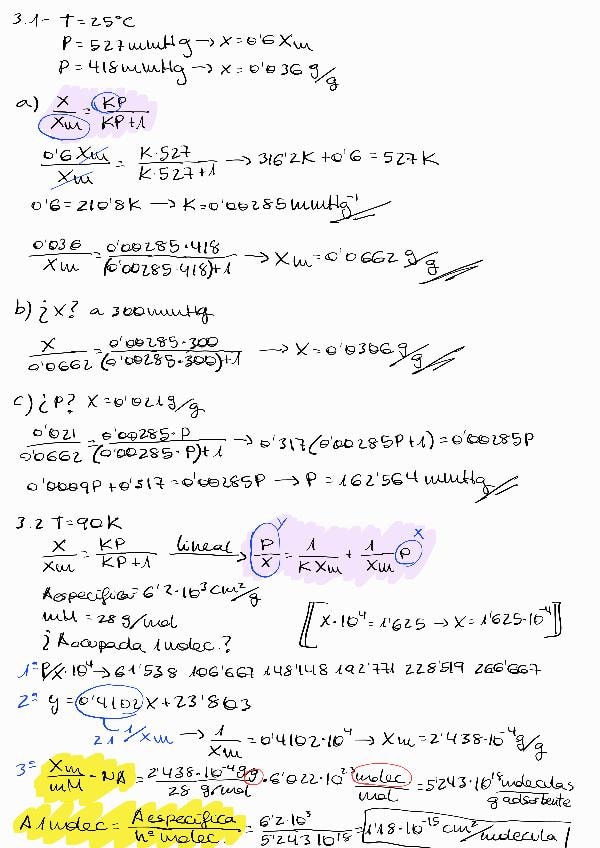 3.1- T=25°C
P=527mmHg→X=0'6Xm
P=418mmHg→X=0'036 g/g
a) X/Xm = KP/KP+1
0'6Xm/Xm = K·527/K·527+1 → 316'2K+0'6=527K
0'6=210'8K → K=0'00285mmHg⁻¹
0'036/Xm = 0'00285·418/(0'00285·418)+1 → Xm=0'0662 g/g
b) ¿X? a 300mmHg
X/0'0662 = 0'00285·300/(0'00285·300)+1 → X=0'0306 g/g
c) ¿P? X=0'021g/g
0'021/0'0662 = 0'00285·P/(0'00285·P)+1 → 0'317(0'00285P+1)=0'00285P
0'0009P+0'317=0'00285P → P=162'564mmHg
3.2 T=90K
X/Xm = KP/KP+1 lineal→ P/X = 1/KXm + 1/Xm P
y
x
Aespecífica=6'2·10³cm²/g
mM=28 g/mol
[X·10⁴=1'625 → X=1'625·10⁻⁴]
¿Aocupada 1molec.?
1º P/X·10⁴→61'538 106'667 148'148 192'771 228'519 266'667
2º y=0'4102x+23'803
1/Xm → 1/Xm=0'4102·10⁴ → Xm=2'438·10⁻⁴g/g
3º Xm/mM·NA=2'438·10⁻⁴g/g/28 g/mol·6'022·10²³molec/mol=5'243·10¹⁸moléculas/g adsorbente
A1molec=Aespecífica/nºmolec.=6'2·10³/5'243·10¹⁸=1'18·10⁻¹⁵cm²/molécula